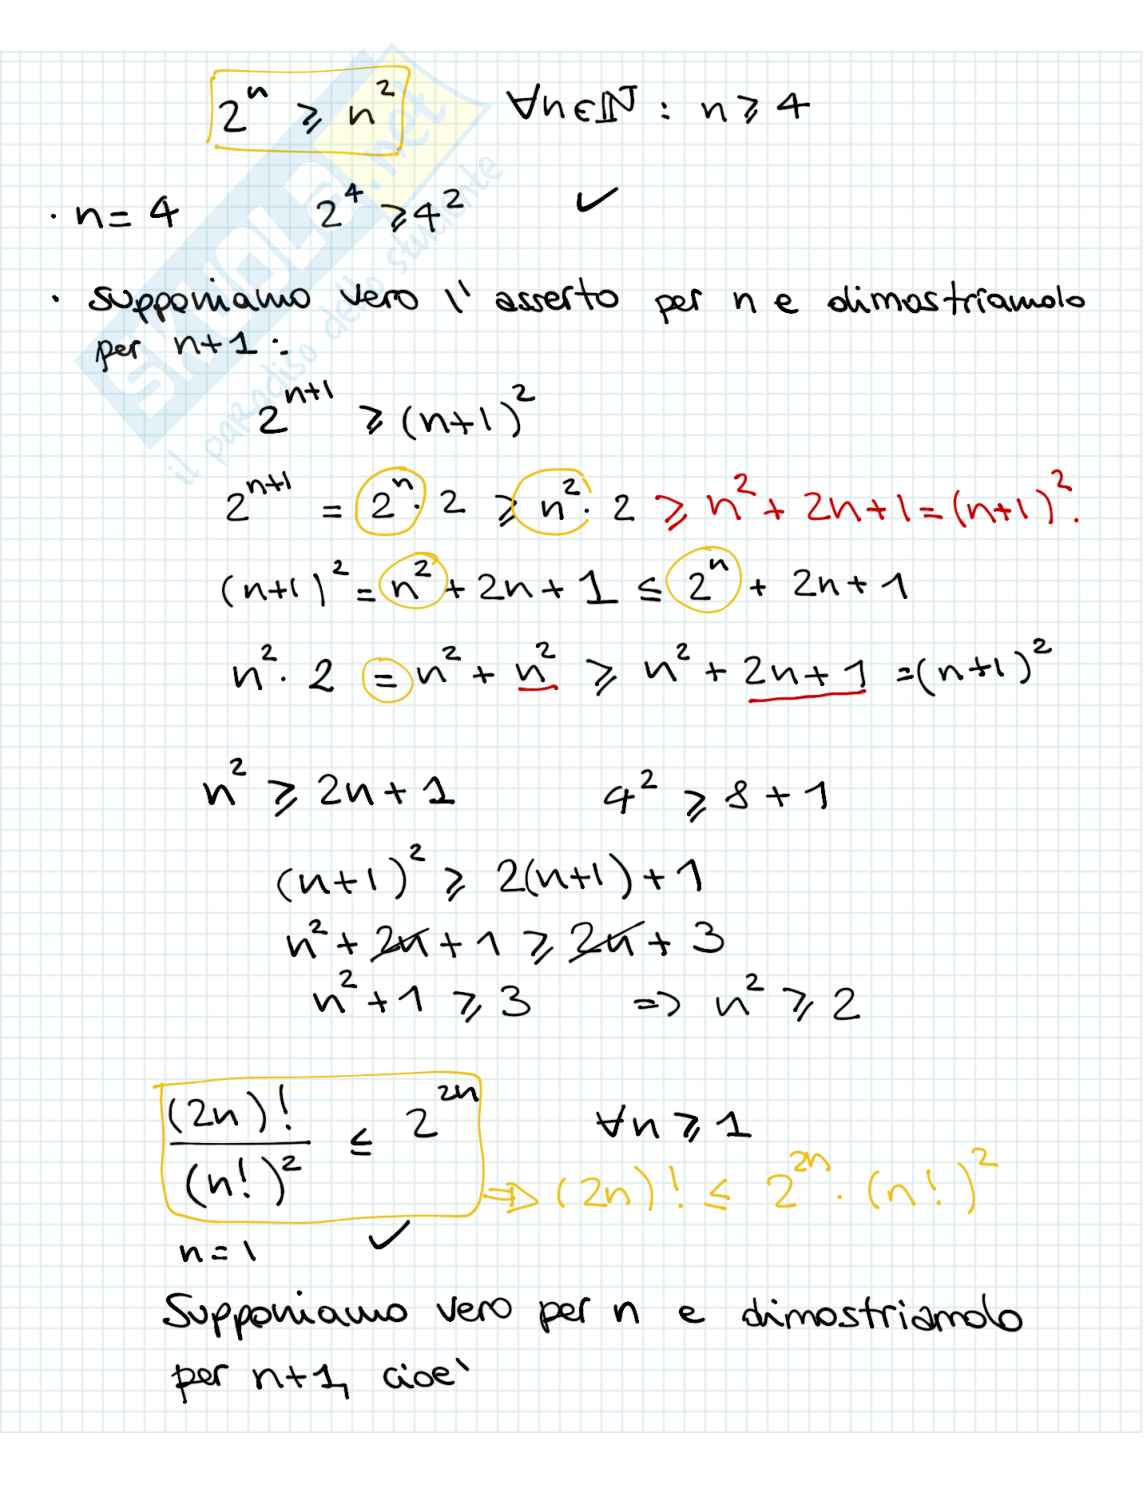 2^n ⩾ n^2 ∀n∈ℕ : n ⩾ 4
· n = 4 2^4 ⩾ 4^2 ✓
· supponiamo vero l' asserto per n e dimostriamolo
per n+1 :
2^{n+1} ⩾ (n+1)^2
2^{n+1} = 2^n · 2 ⩾ n^2 · 2 ⩾ n^2 + 2n+1 = (n+1)^2.
(n+1)^2 = n^2 + 2n + 1 ≤ 2^n + 2n + 1
n^2 · 2 = n^2 + n^2 ⩾ n^2 + 2n + 1 = (n+1)^2
n^2 ⩾ 2n + 1 4^2 ⩾ 8 + 1
(n+1)^2 ⩾ 2(n+1) + 1
n^2 + 2n + 1 ⩾ 2n + 3
n^2 + 1 ⩾ 3 => n^2 ⩾ 2
(2n)! / (n!)^2 ≤ 2^{2n} ∀n ⩾ 1
⇒ (2n)! ≤ 2^{2n} · (n!)^2
n = 1 ✓
Supponiamo vero per n e dimostriamolo
per n+1, cioe'
SKUOLA.net
il paradiso dello studente